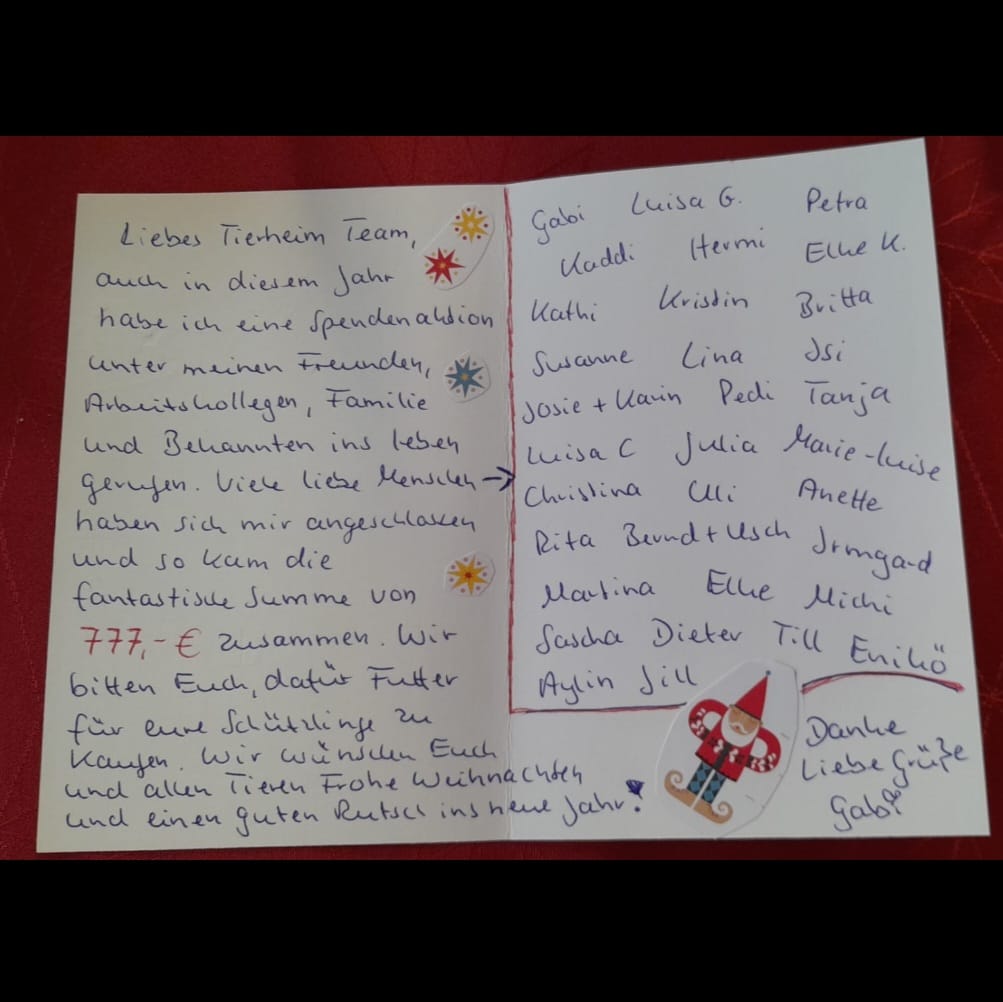 Liebes Tierheim Team,
auch in diesem Jahr
habe ich eine Spendenaktion
unter meinen Freunden,
Arbeitskollegen, Familie
und Bekannten ins leben
gerufen. Viele liebe Menschen →
haben sich mir angeschlossen
und so kam die
fantastische Summe von
777,- € zusammen. Wir
bitten Euch, dafür Futter
für eure Schützlinge zu
kaufen. Wir wünschen Euch
und allen Tieren Frohe Weihnachten
und einen guten Rutsch ins neue Jahr!
Gabi Luisa G. Petra
Kaddi Hermi Elke K.
Kathi Kristin Britta
Susanne Lina Isi
Josie + Karin Pedi Tanja
Luisa C Julia Marie-Luise
Christina Ulli Anette
Rita Bernd + Usch Irmgard
Martina Elke Michi
Sascha Dieter Till Enikö
Aylin Jill
Danke
Liebe Grüße
Gabi